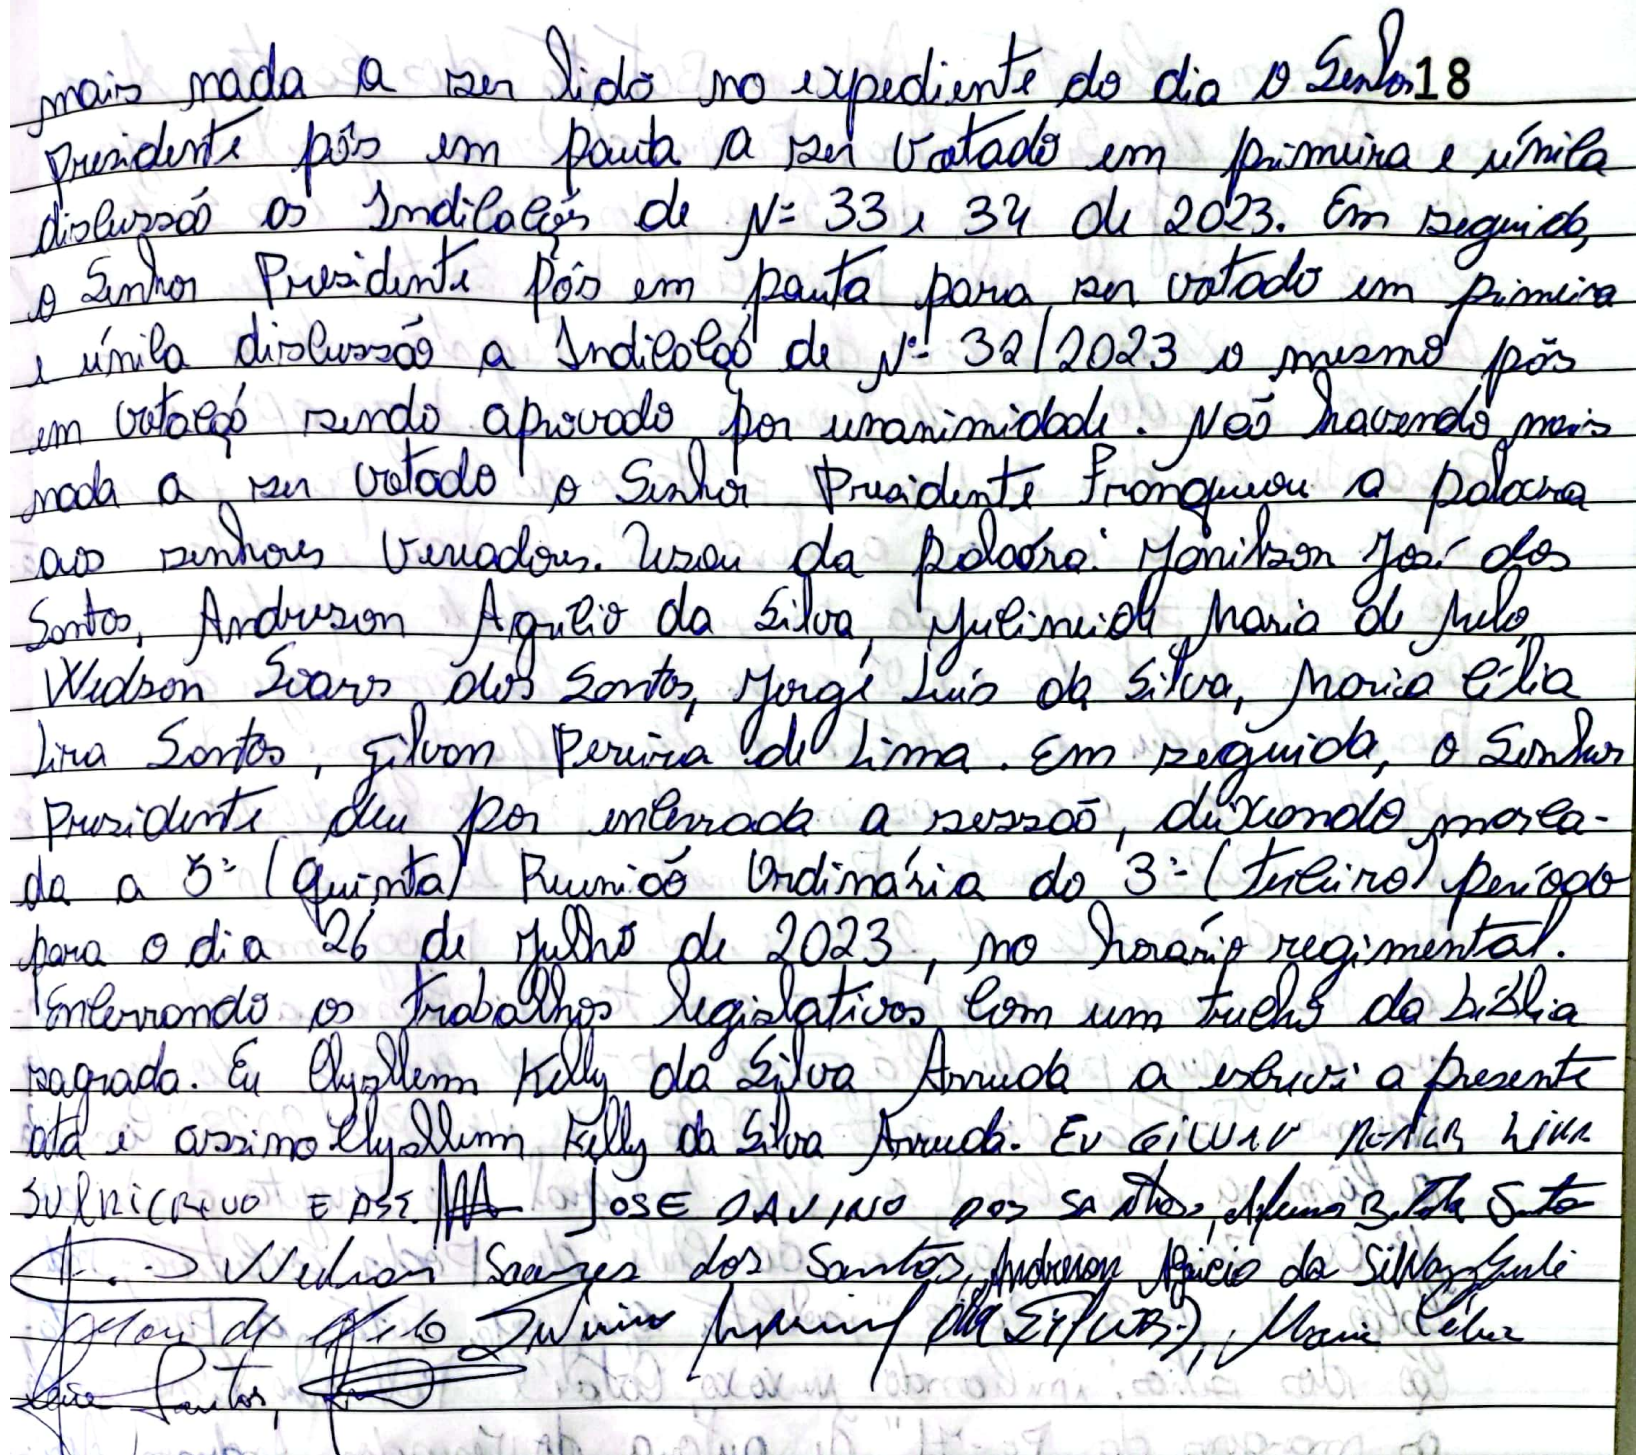 mais nada a ser lido no expediente do dia o Senhor 18
Presidente pôs em pauta a ser votado em primeira e única
discussão as Indicações de Nº 33 e 34 de 2023. Em seguida,
o Senhor Presidente pôs em pauta para ser votado em primeira
e única discussão a Indicação de Nº 32/2023 o mesmo pôs
em votação sendo aprovado por unanimidade. Não havendo mais
nada a ser votado o Senhor Presidente Franqueou a palavra
aos senhores Vereadores. Usou da palavra: Jonilson José dos
Santos, Andreson Agrício da Silva, Julineide Maria de Melo,
Wedson Soares dos Santos, Jorge Luis da Silva, Maria Célia
Lira Santos, Gilvan Pereira de Lima. Em seguida, o Senhor
Presidente deu por encerrada a sessão, deixando marca-
da a 5ª (Quinta) Reunião Ordinária do 3º (terceiro) período
para o dia 26 de Julho de 2023, no horário regimental.
Encerrando os trabalhos legislativos com um trecho da bíblia
sagrada. Eu Clysllenn Kelly da Silva Arruda a escrevi a presente
ata e assino Clysllenn Kelly da Silva Arruda. EU GILVAN LIMA
E JOSE DAVINO DOS SANTOS,
Wedson Soares dos Santos, Andreson Agricio da Silva, Juli
de Melo da Silva, Maria Célia
Lira Santos,